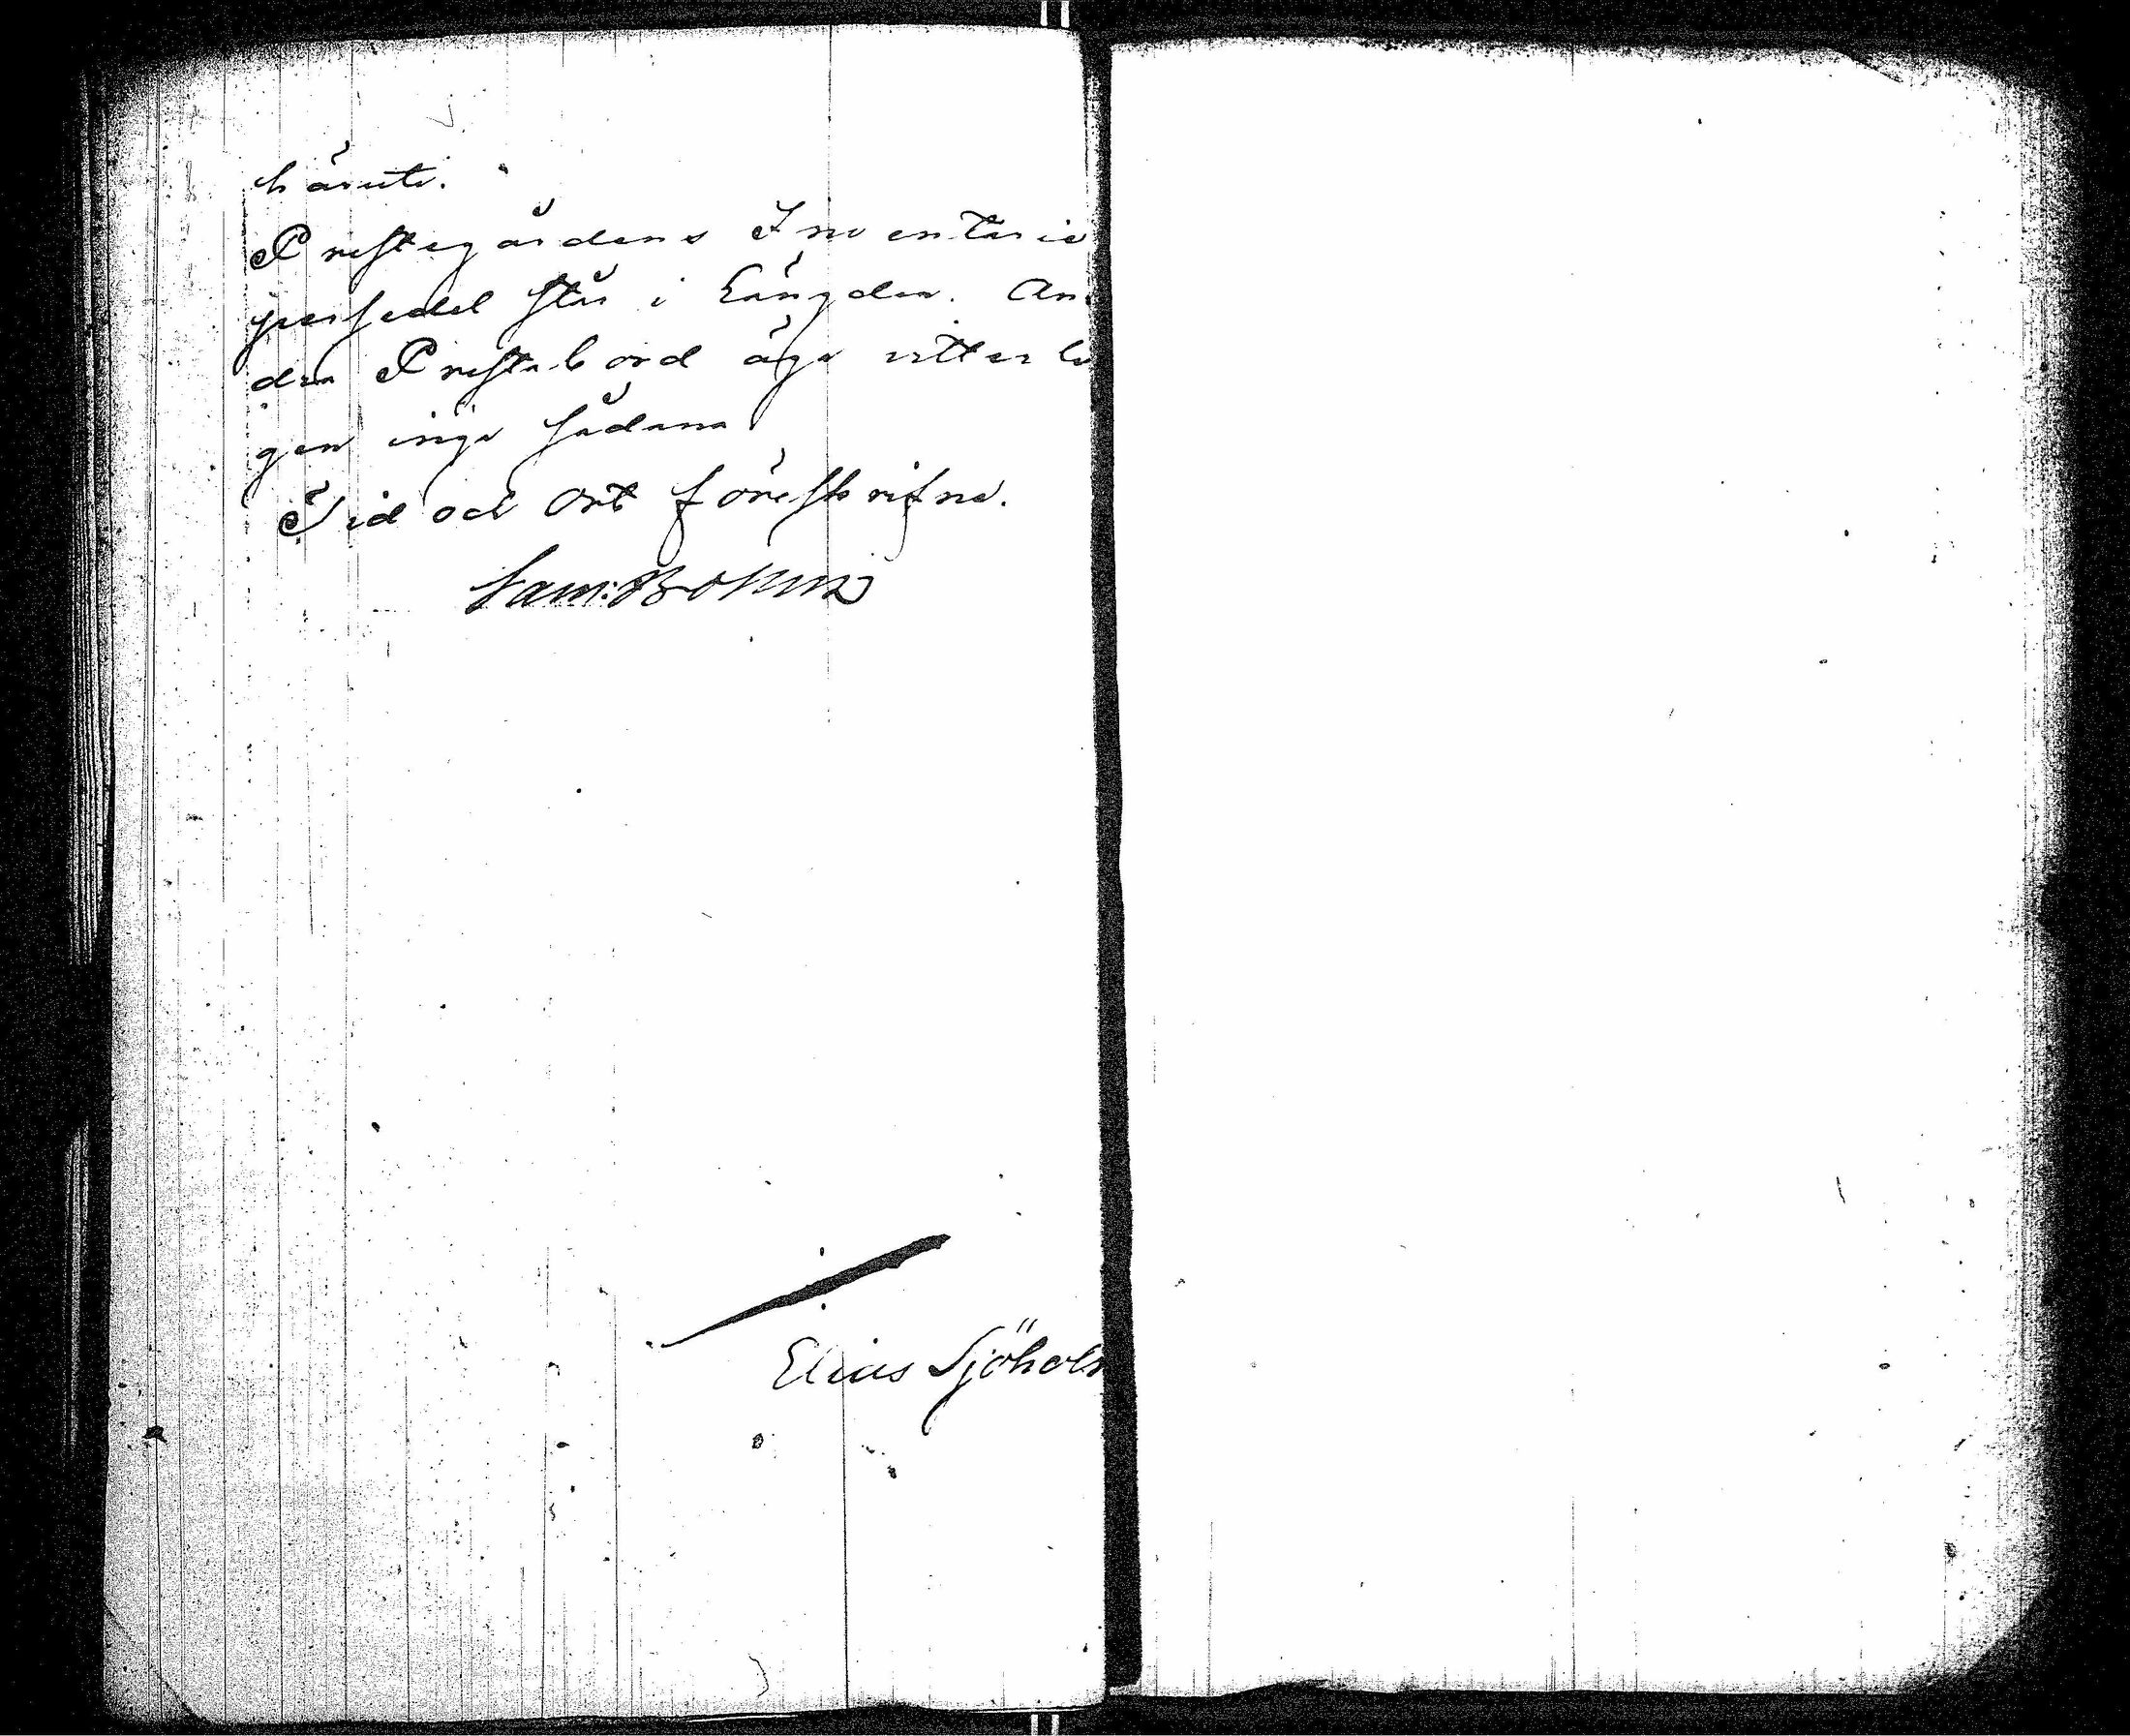 häruti.
Prestegårdens Inventarie
persedel står i Längden. An-
dra Prestabord äga ytterli
gen inga sådana
Tid och Ort föreskrifne.
Sam: Bohm
Elias Sjöholm